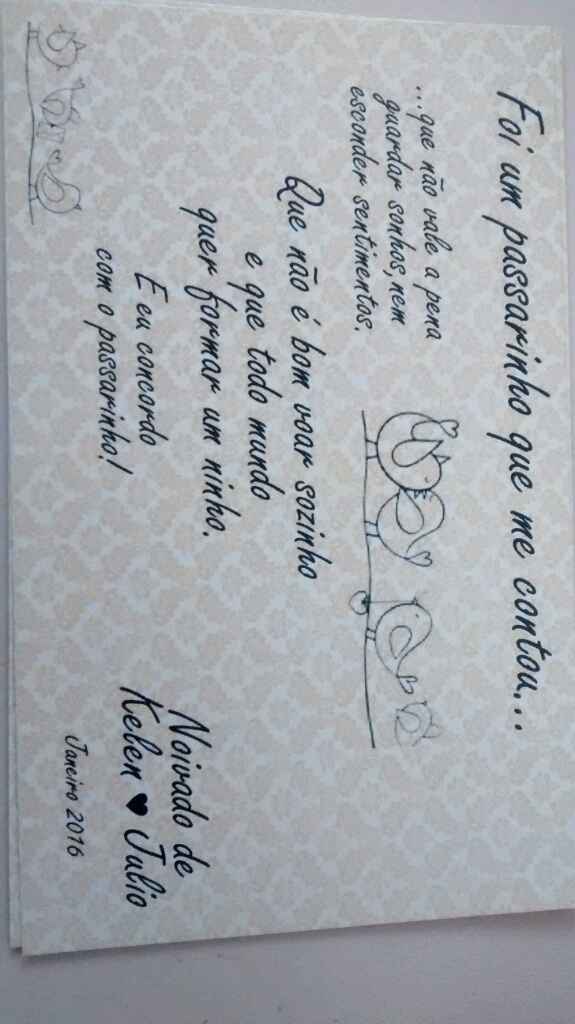 Foi um passarinho que me contou...
...que não vale a pena
guardar sonhos, nem
esconder sentimentos.
Que não é bom voar sozinho
e que todo mundo
quer formar um ninho.
E eu concordo
com o passarinho!
Noivado de
Kelen ♥ Julio
Janeiro 2016